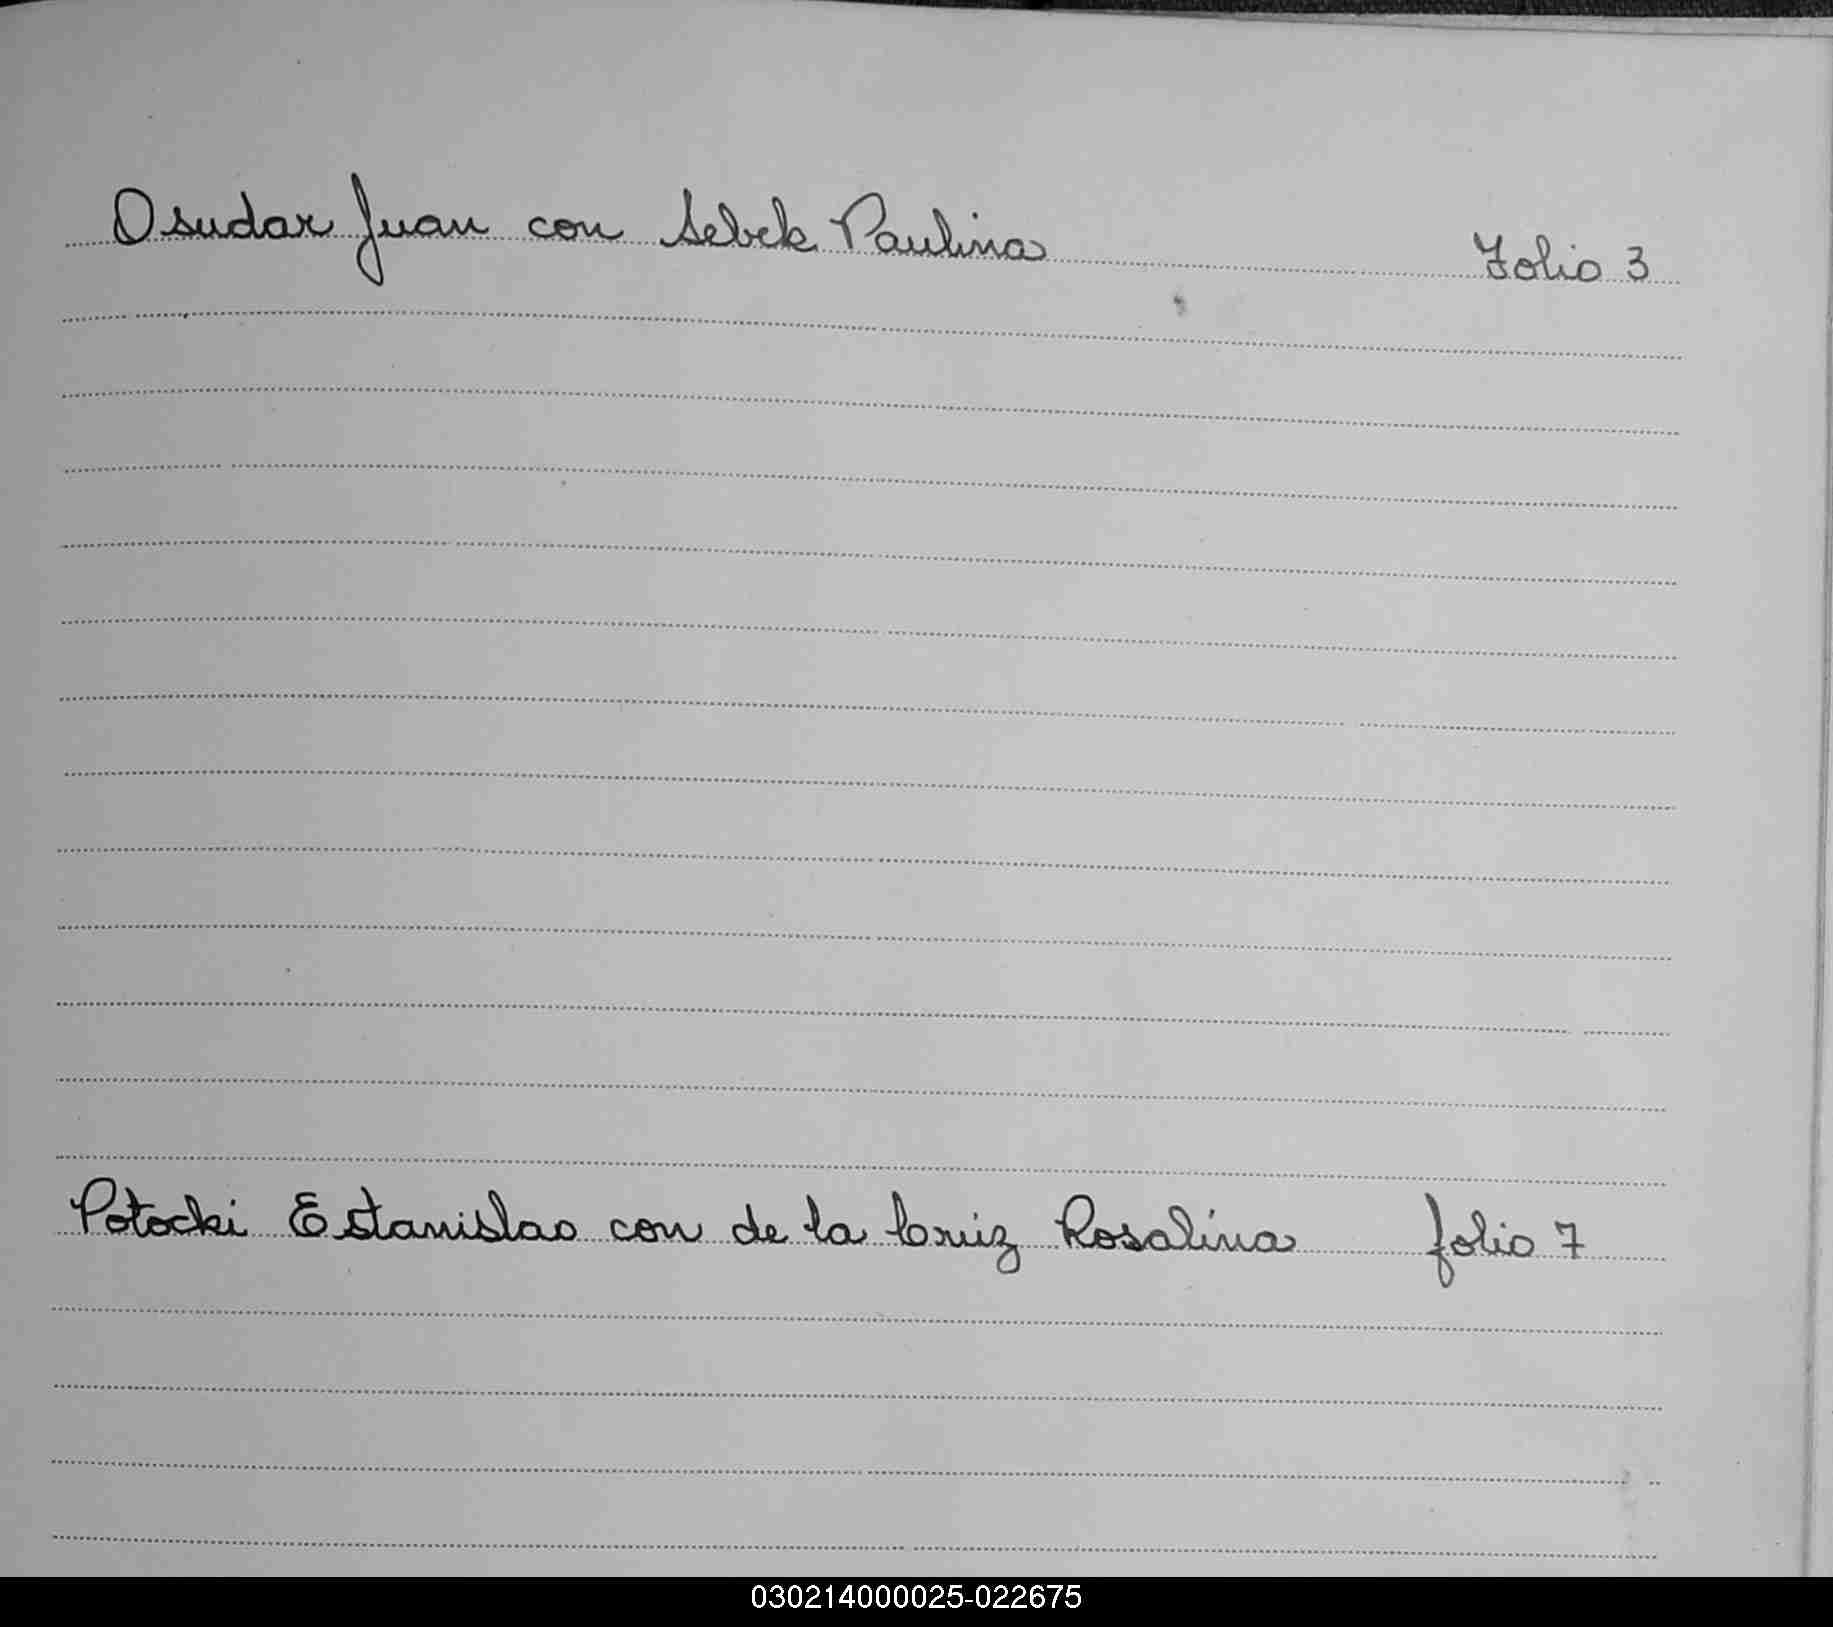 Osudar Juan con Sebek Paulina Folio 3
Potocki Estanislao con de la Cruz Rosalina folio 7
030214000025-022675